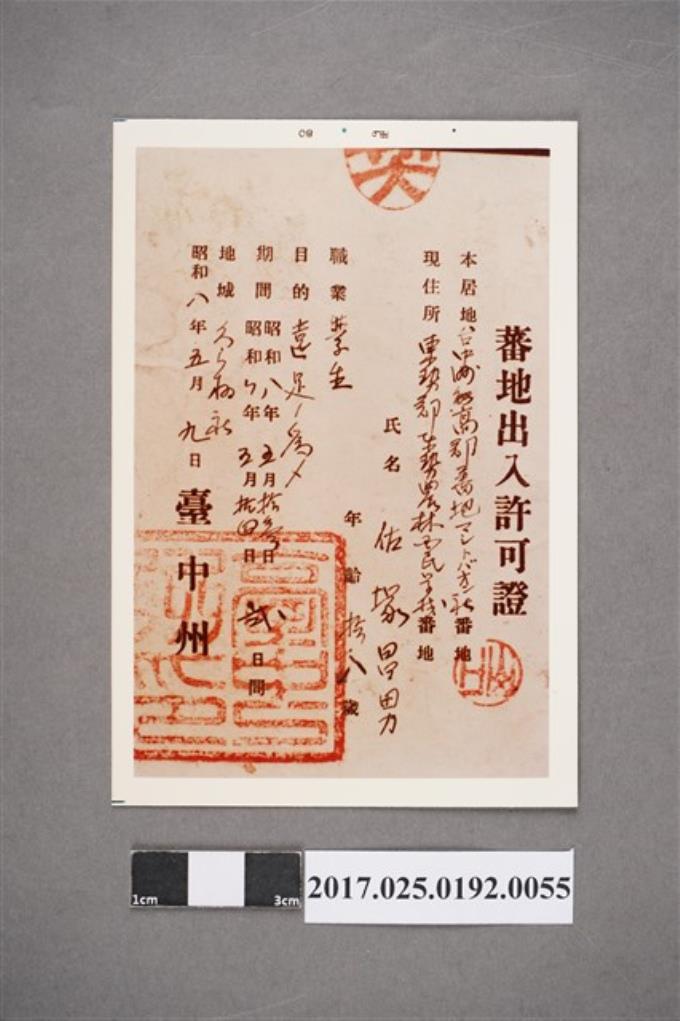 蕃地出入許可證
本居地 台中州能高郡蕃地マレトバ社 番地
現住所 東勢郡東勢農林國民學校 番地
氏名 佐塚昌男
年齡 拾八歲
職業 學生
目的 遠足ノ為メ
期間 昭和八年五月拾參日
昭和八年五月拾四日 弐日間
地域
昭和八年五月九日
臺中州
1cm
3cm
2017.025.0192.0055